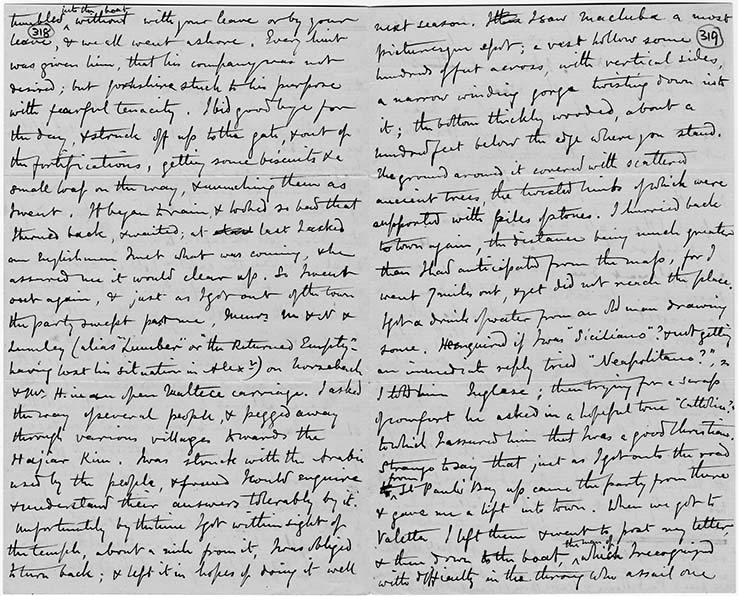 318
into the boat
tumbled ^ without with your leave or by your
leave, & we all went ashore. Every hint
was given him, that his company was not
desired; but Yorkshire stuck to his purpose
with fearful tenacity. I bid good bye for
the day, & struck off up to the gate, & out of
the fortifications, getting some biscuits & a
small loaf on the way, & munching them as
I went. It began to rain, & looked so bad that
I turned back, & waited; at last I asked
an Englishman I met what was coming, & he
assured me it would clear up. So I went
out again, & just as I got out of the town
the party swept past me, Messrs M & N &
Lumley (alias "Lumber" or "the Returned Empty"
having lost his situation in Alexa) on horseback
& Mr. H. in an open Maltese carriage. I asked
the way of several people, & pegged away
through various villages towards the
Hajiar Kim. I was struck with the Arabic
used by the people, & found I could enquire
& understand their answers tolerably by it.
Unfortunately by the time I got within sight of
the temple, about a mile from it, I was obliged
to turn back; & left it in hopes of doing it well
319
next season. I saw Macluba a most
picturesque spot; a vast hollow some
hundreds of feet across, with vertical sides,
a narrow winding gorge twisting down into
it; the bottom thickly wooded, about a
hundred feet below the edge where you stand.
The ground around it covered with scattered
ancient trees, the twisted limbs of which were
supported with piles of stones. I hurried back
to town again, the distance being much greater
than I had anticipated from the map, for I
went 7 miles out, & yet did not reach the place.
I got a drink of water from an old man drawing
some. He enquired if I was "Siciliano"? & not getting
an immediate reply tried "Neapolitano?", so
I told him Inglese; then trying for a scrap
of comfort he asked in a hopeful tone "Cattolico?"
to which I assured him that I was a good Christiano.
Strange to say that just as I got onto the road
from St Paul's Bay up came the party from there
& gave me a lift into town. When we got to
Valetta I left them & went to post my letter,
the man of
& then down to the boat, ^ which I recognized
with difficulty in the throng who assail one